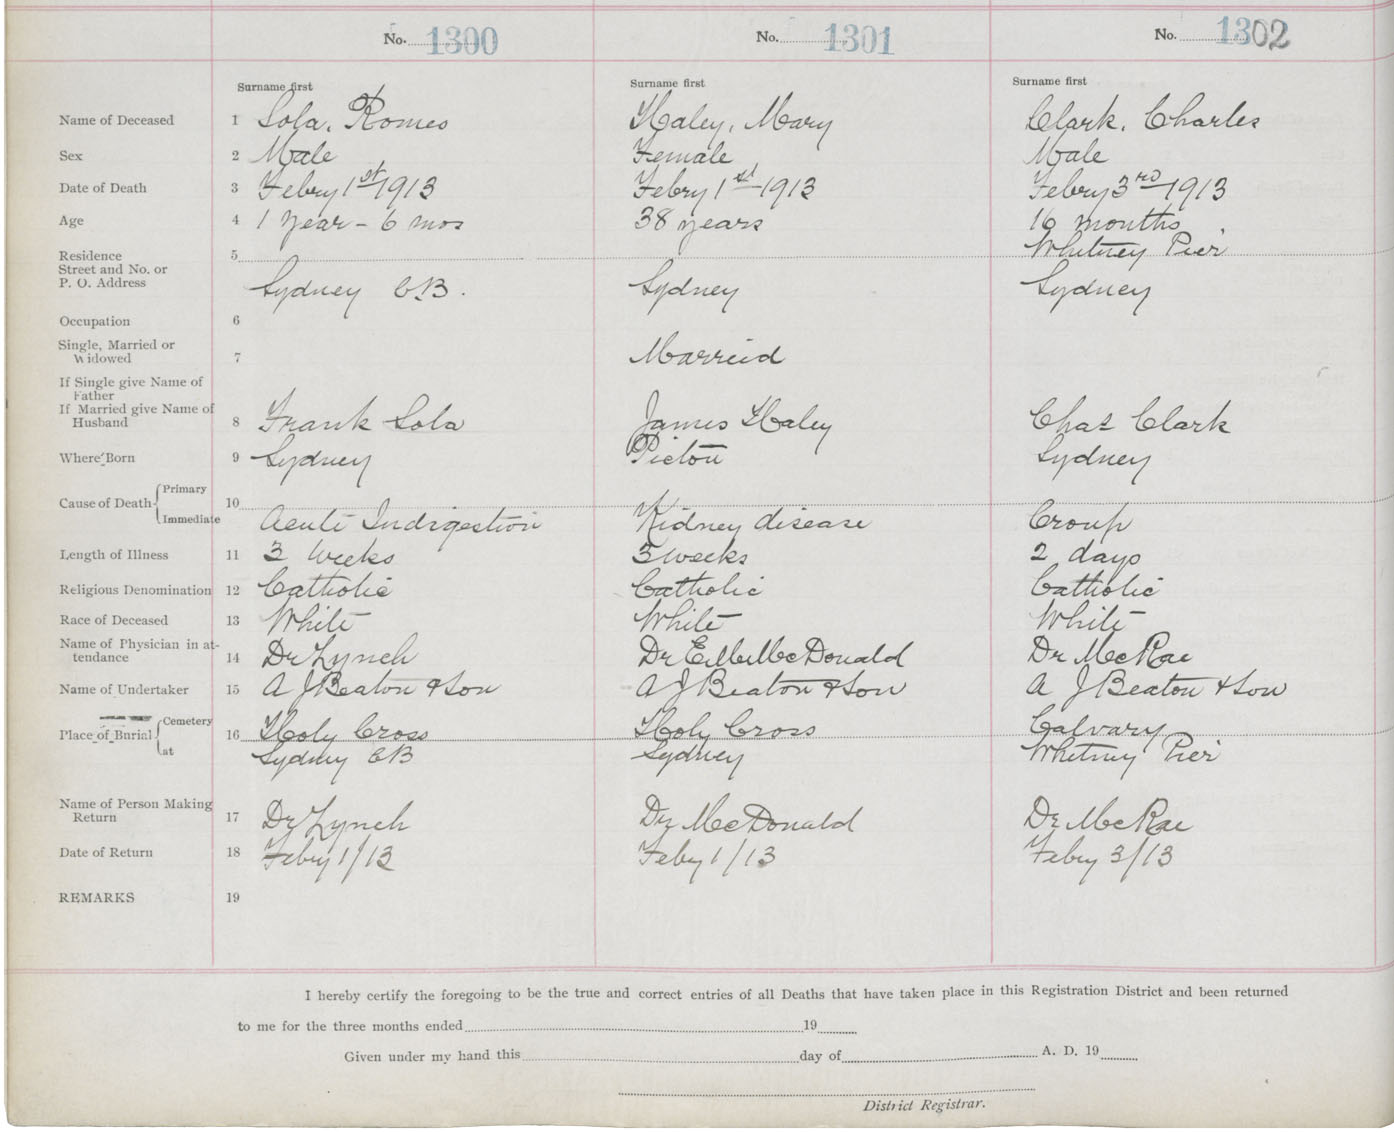 No. 1300 No. 1301 No. 1302
Surname first Surname first Surname first
Name of Deceased 1 Sola, Romeo Haley, Mary Clark, Charles
Sex 2 Male Female Male
Date of Death 3 Febry 1st 1913 Febry 1st 1913 Febry 3rd 1913
Age 4 1 year - 6 mos 38 years 16 months
Residence 5 Whitney Pier
Street and No. or
P. O. Address Sydney C.B. Sydney Sydney
Occupation 6
Single, Married or
Widowed 7 Marreid
If Single give Name of
Father
If Married give Name of
Husband 8 Frank Sola James Haley Chas Clark
Where Born 9 Sydney Picton Sydney
Cause of Death Primary 10
Immediate Acute Indigestion Kidney disease Croup
Length of Illness 11 3 weeks 3 weeks 2 days
Religious Denomination 12 Catholic Catholic Catholic
Race of Deceased 13 White White White
Name of Physician in at-
tendance 14 Dr Lynch Dr E. McDonald Dr McRae
Name of Undertaker 15 A J Beaton & Son A J Beaton & Son A J Beaton & Son
Place of Burial Cemetery 16 Holy Cross Holy Cross Calvary
at Sydney CB Sydney Whitney Pier
Name of Person Making
Return 17 Dr Lynch Dr McDonald Dr McRae
Date of Return 18 Febry 1/13 Feby 1/13 Febry 3/13
REMARKS 19
I hereby certify the foregoing to be the true and correct entries of all Deaths that have taken place in this Registration District and been returned
to me for the three months ended 19
Given under my hand this day of A. D. 19
District Registrar.